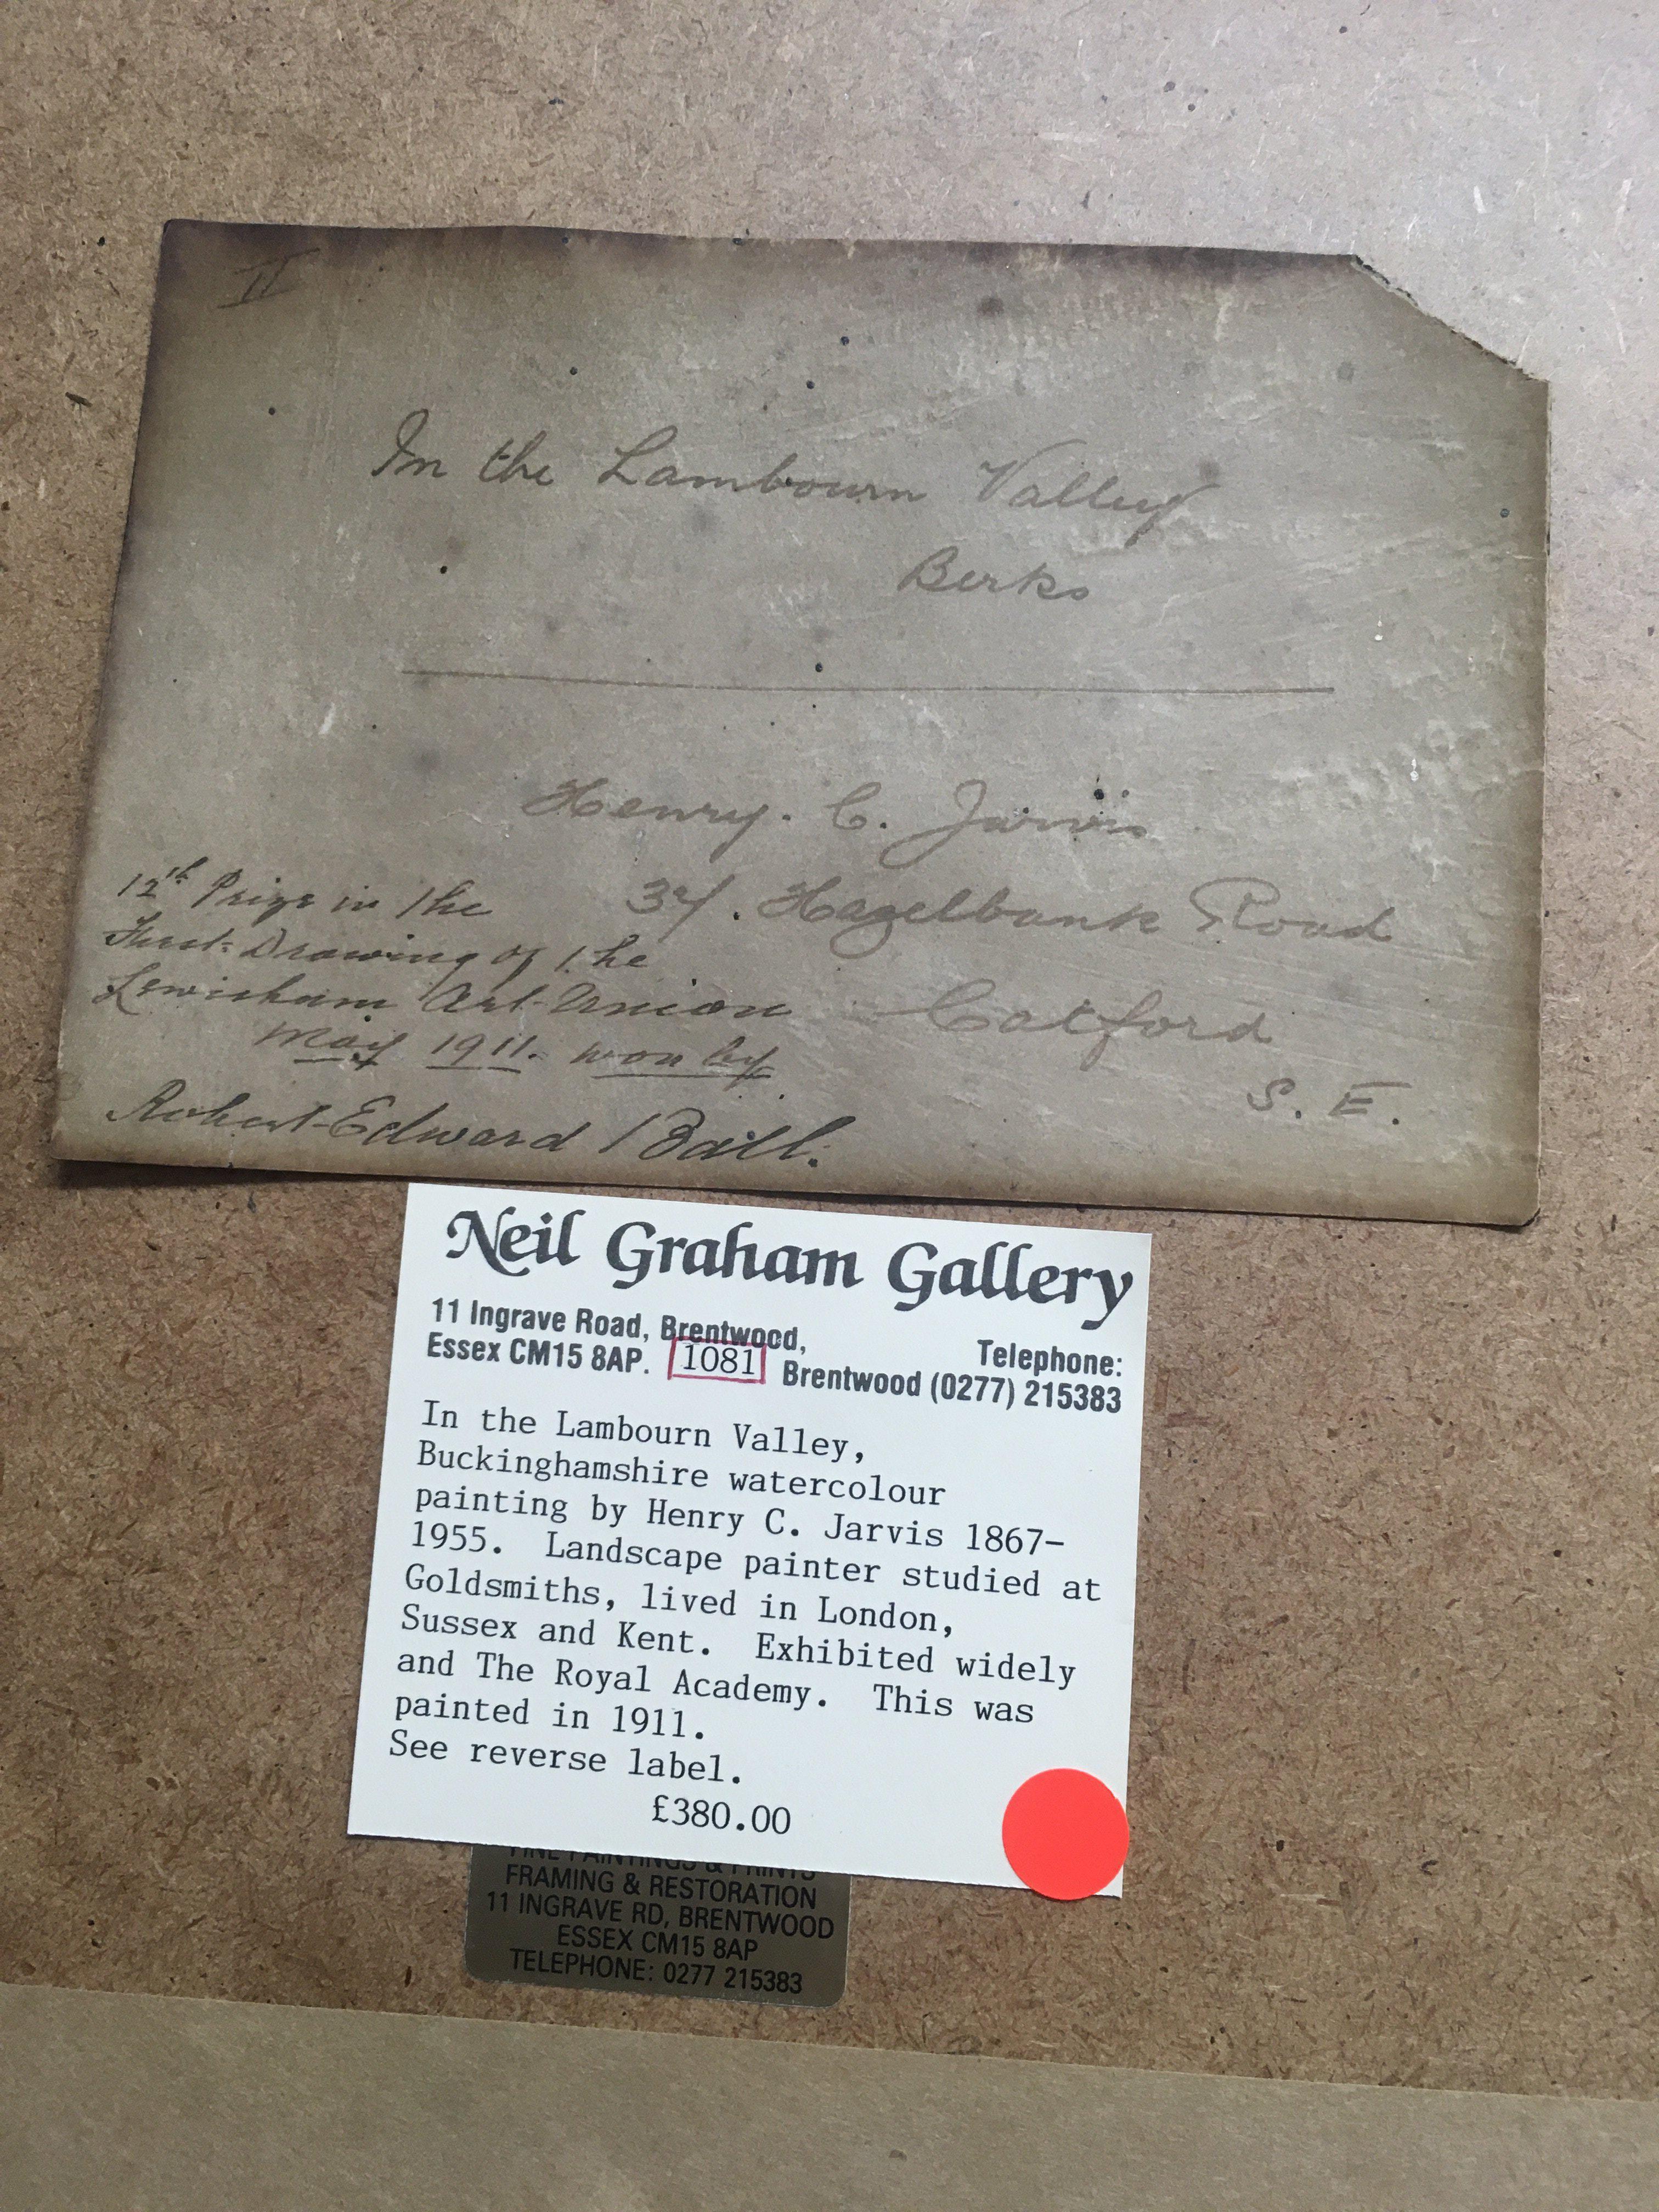 II
In the Lambourn Valley
Berks
Henry. C. Jarvis
34. Hazelbank Road
Catford
S. E.
12th Prize in the
First Drawing of the
Lewisham Art Union
May 1911. won by
Robert Edward Ball.
Neil Graham Gallery
11 Ingrave Road, Brentwood,
Essex CM15 8AP.
1081
Telephone:
Brentwood (0277) 215383
In the Lambourn Valley,
Buckinghamshire watercolour
painting by Henry C. Jarvis 1867-
1955. Landscape painter studied at
Goldsmiths, lived in London,
Sussex and Kent. Exhibited widely
and The Royal Academy. This was
painted in 1911.
See reverse label.
£380.00
FINE PAINTINGS & PRINTS
FRAMING & RESTORATION
11 INGRAVE RD, BRENTWOOD
ESSEX CM15 8AP
TELEPHONE: 0277 215383